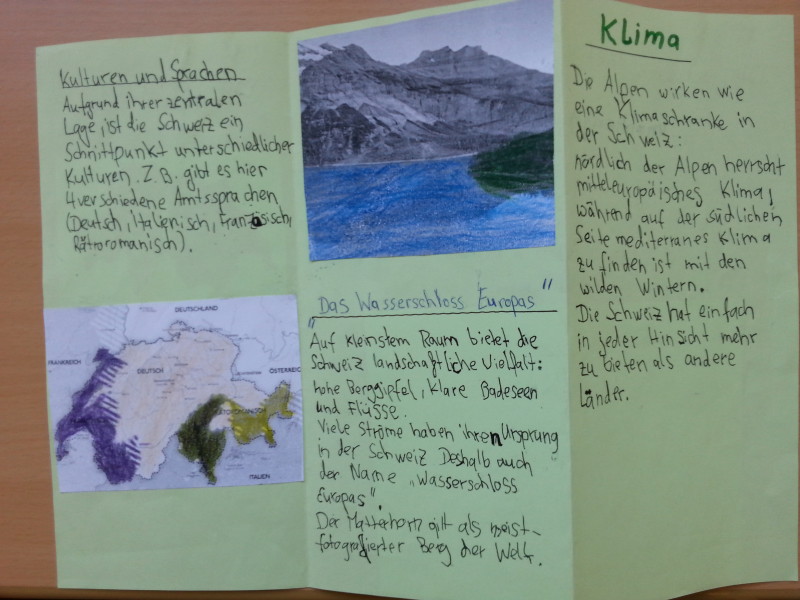 Kulturen und Sprachen
Aufgrund ihrer zentralen
Lage, ist die Schweiz ein
Schnittpunkt unterschiedlicher
Kulturen. Z.B. gibt es hier
4 verschiedene Amtssprachen
(Deutsch, italienisch, Französisch,
Rätroromanisch).
DEUTSCHLAND
FRANKREICH
DEUTSCH
ÖSTERREICH
ITALIEN
"Das Wasserschloss Europas"
"Auf kleinstem Raum bietet die
Schweiz landschaftliche Vielfalt:
hohe Berggipfel, klare Badeseen
und Flüsse.
Viele Ströme haben ihren Ursprung
in der Schweiz Deshalb auch
der Name „Wasserschloss
Europas".
Der Matterhorn gilt als meist-
fotografierter Berg der Welt.
Klima
Die Alpen wirken wie
eine Klimaschranke in
der Schweiz:
nördlich der Alpen herrscht
mitteleuropäisches Klima,
während auf der südlichen
Seite mediterranes Klima
zu finden ist mit den
wilden Wintern.
Die Schweiz hat einfach
in jeder Hinsicht mehr
zu bieten als andere
Länder.